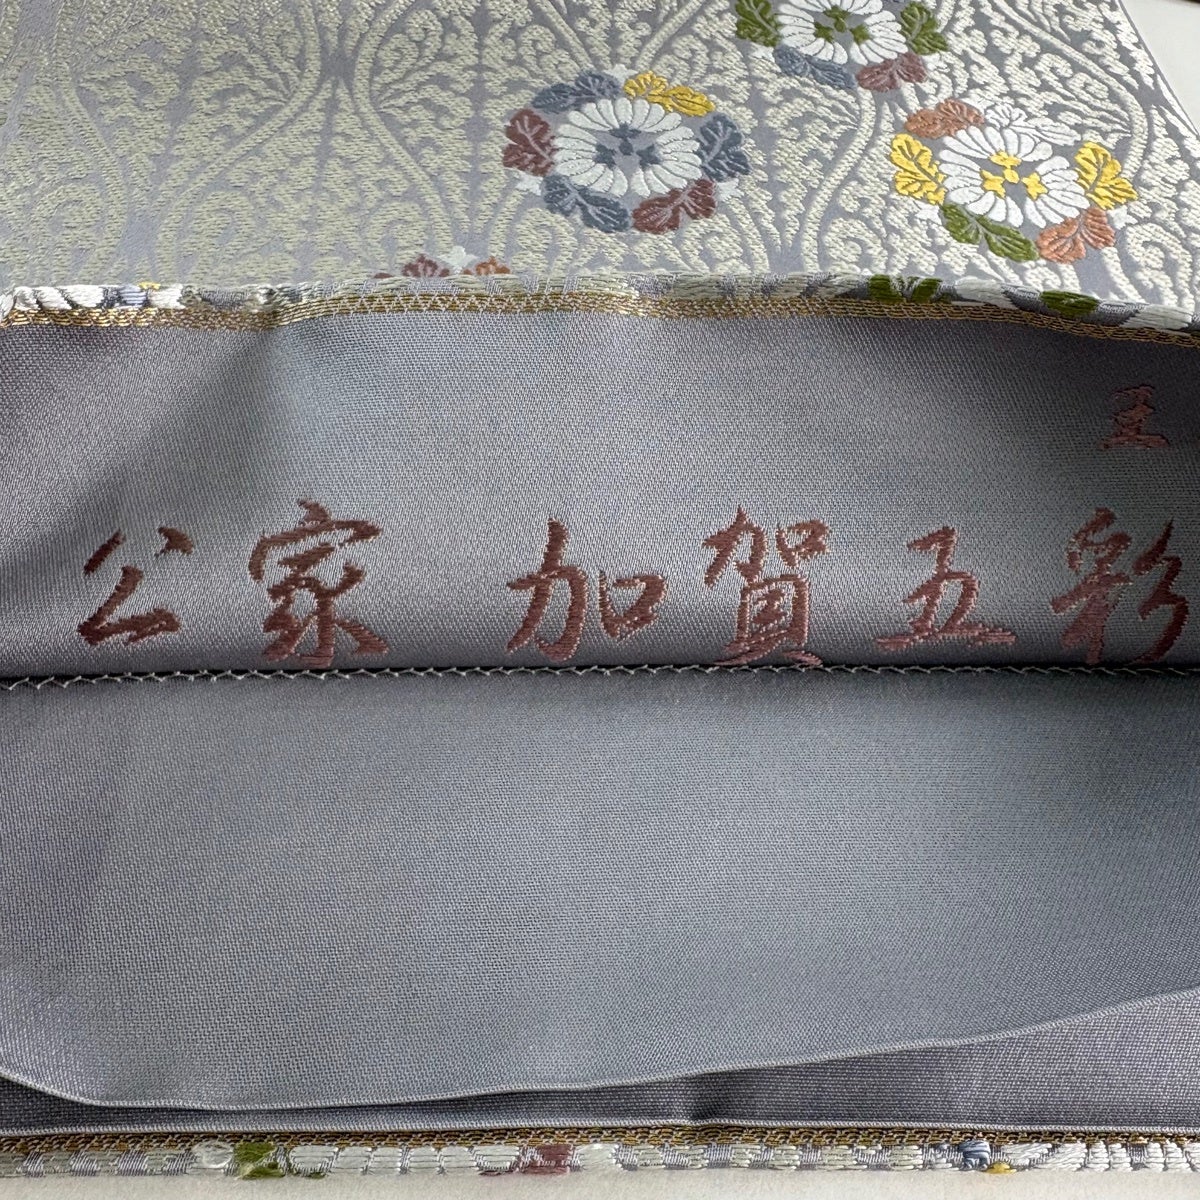 王
公家 加賀五彩